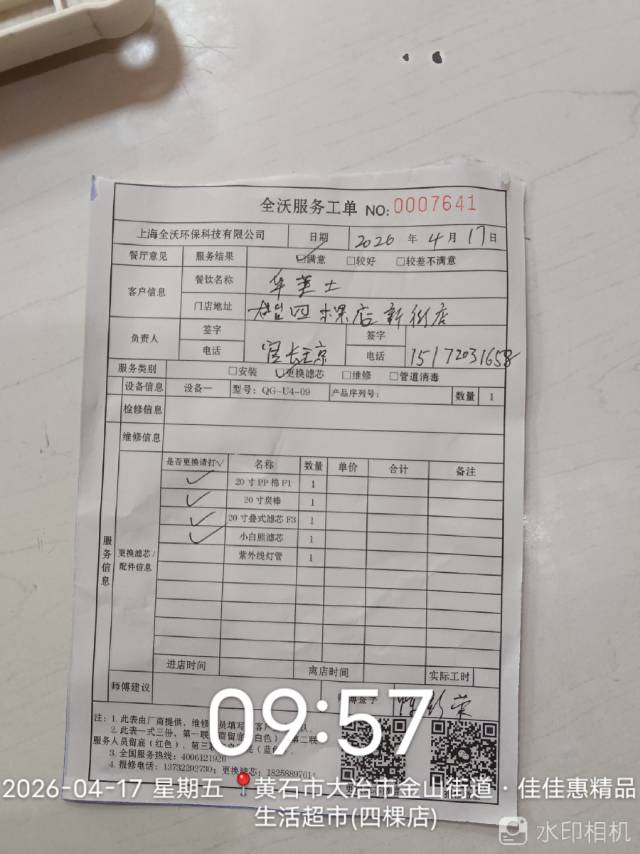 全沃服务工单 NO: 0007641
上海全沃环保科技有限公司 日期 2026 年 4 月 17 日
餐厅意见 服务结果 ☑满意 □较好 □较差不满意
客户信息 餐饮名称 华莱士
门店地址 四棵店新街店
负责人 签字 签字
电话 电话 15172031658
服务类别 □安装 ☑更换滤芯 □维修 □管道消毒
设备信息 设备一 型号: QG-U4-09 产品序列号: 数量 1
检修信息
维修信息
服务信息
更换滤芯/配件信息
是否更换请打√ 名称 数量 单价 合计 备注
✓ 20寸PP棉F1 1
✓ 20寸炭棒 1
✓ 20寸叠式滤芯F3 1
✓ 小白熊滤芯 1
紫外线灯管 1
进店时间 离店时间 实际工时
师傅建议
注: 1.此表由厂商提供, 维修
2.此表一式三份, 第一联
服务人员留底(红色), 第三
3.全国服务热线: 4006121926
4.报修电话: 13732292730; 更换滤芯:
09:57
2026-04-17 星期五 黄石市大冶市金山街道·佳佳惠精品
生活超市(四棵店)
水印相机